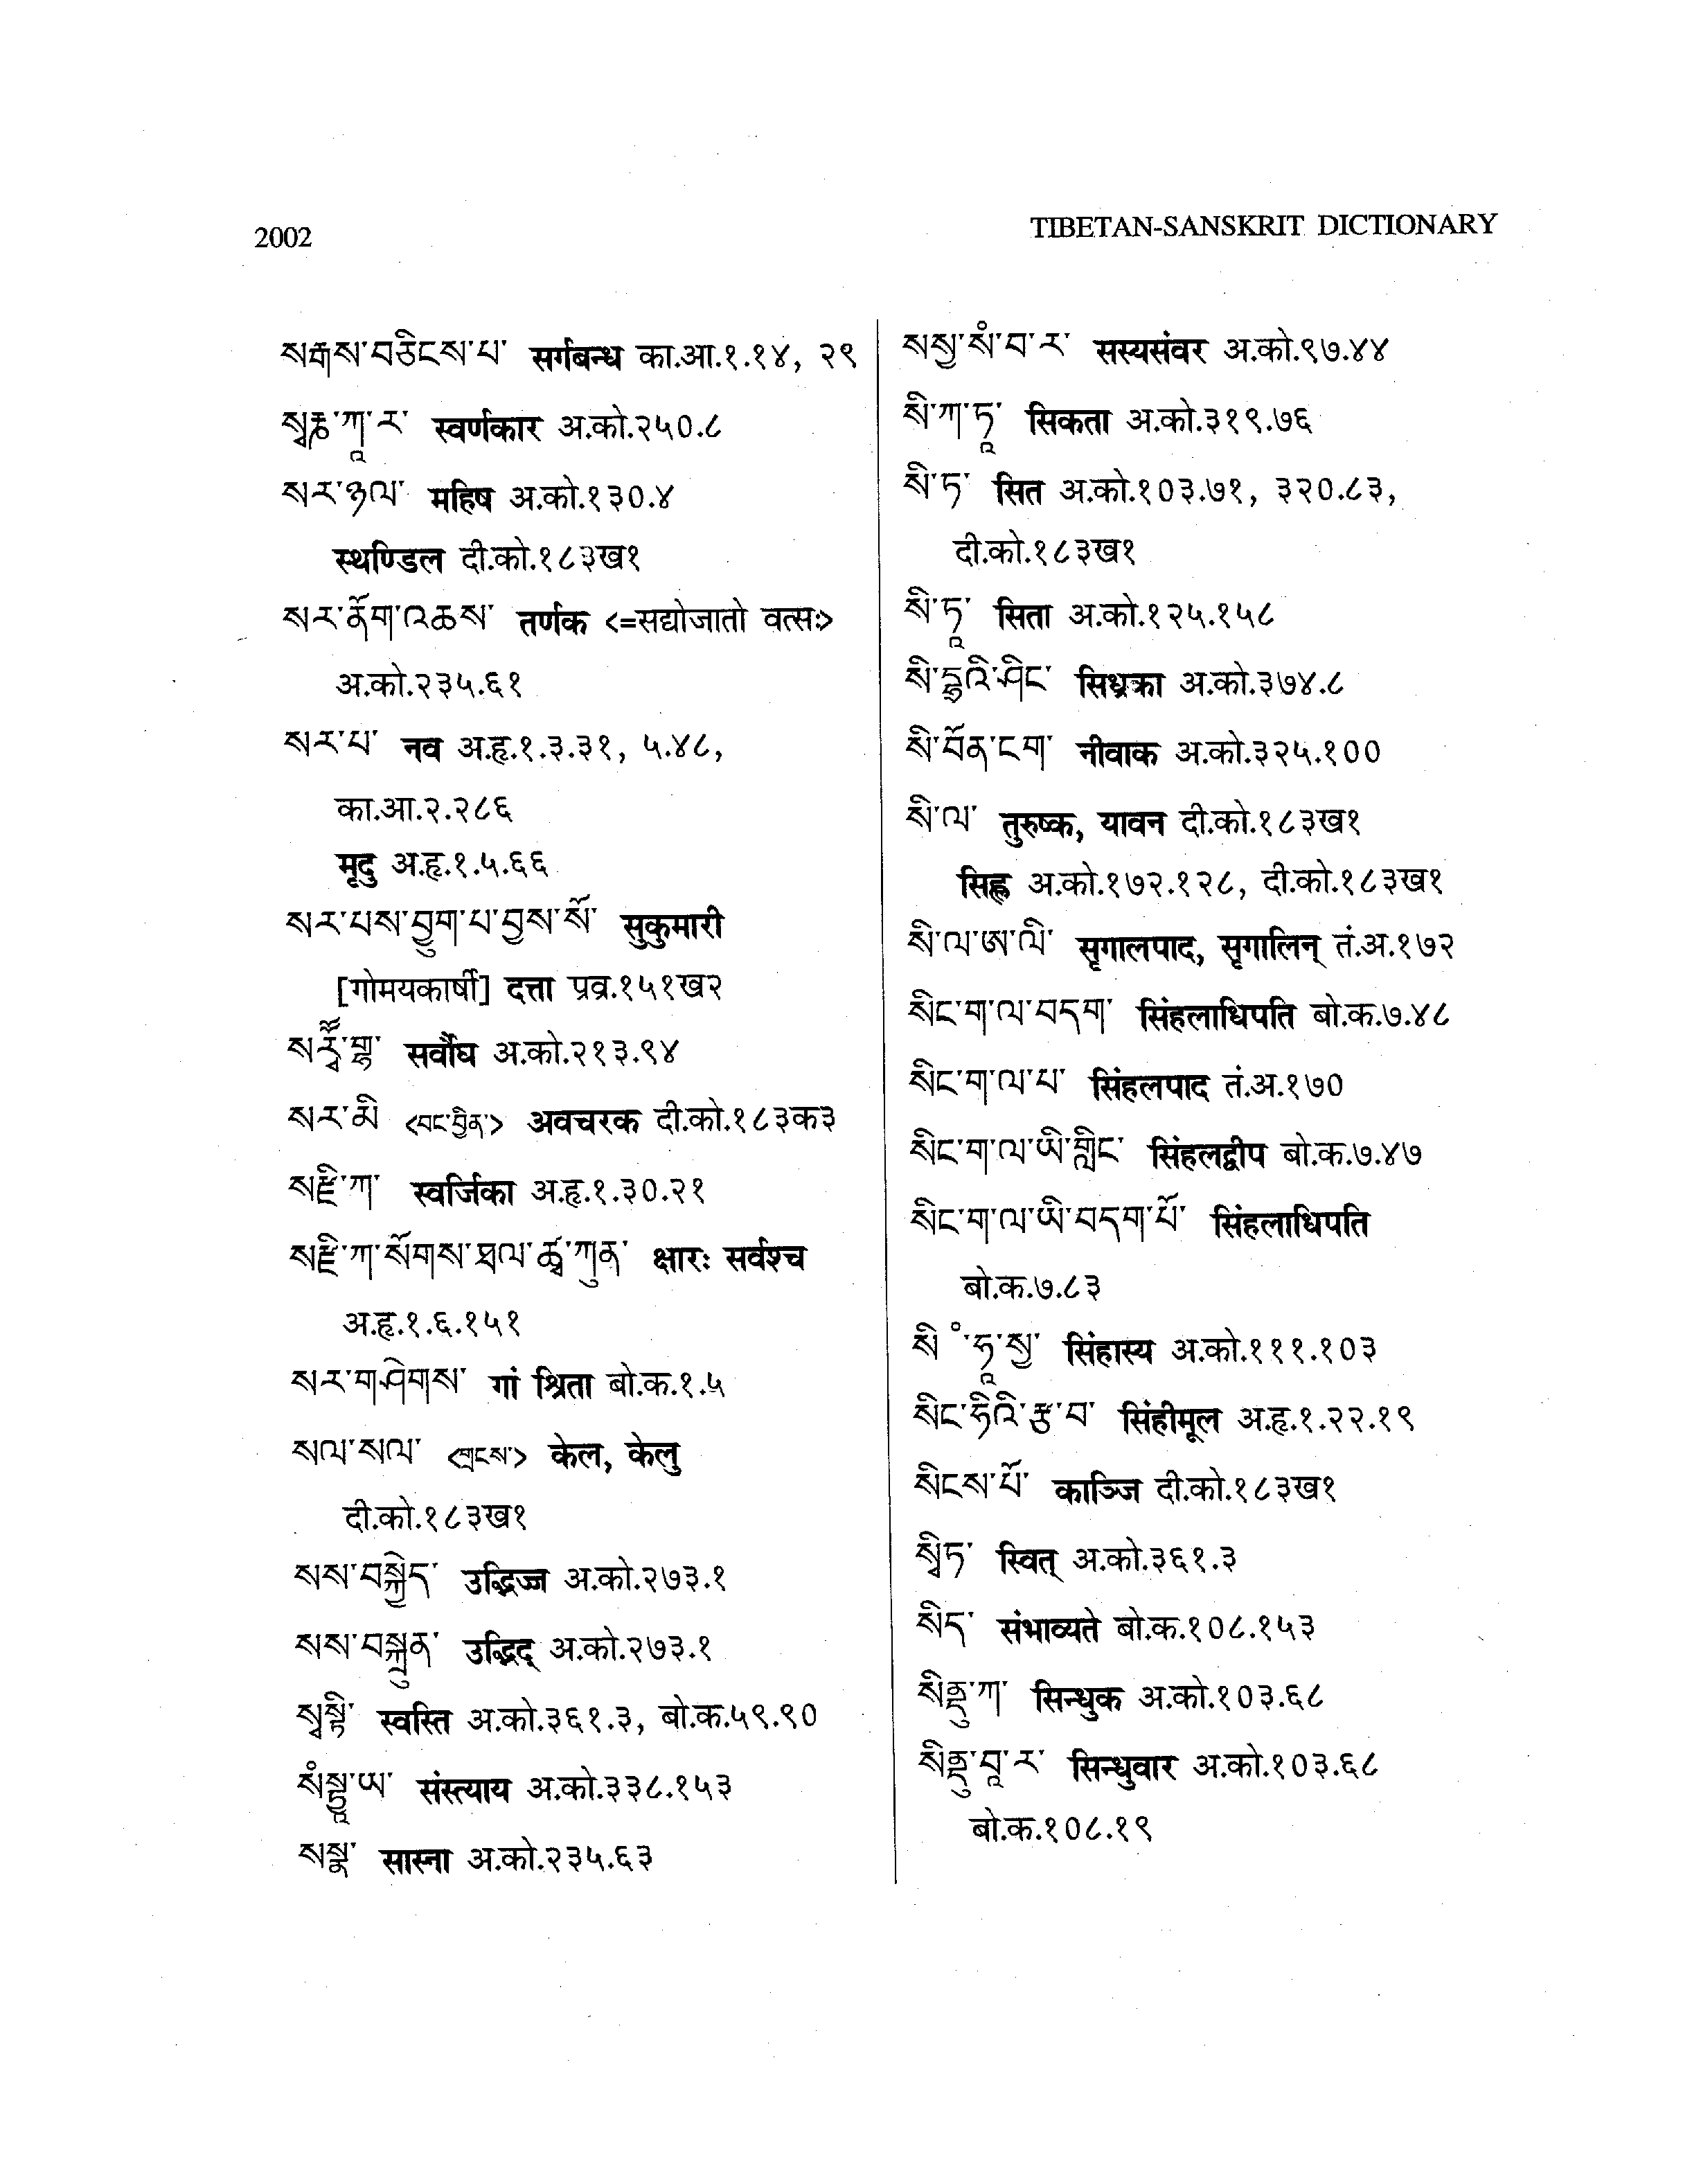 2002
TIBETAN-SANSKRIT DICTIONARY
སརྒས་བཅིངས་པ་ सर्गबन्ध का.आ.१.१४, २९
स्वर्णकार अ.को.२५०.८
སར་ཉལ་ महिष अ.को.१३०.४
स्थण्डिल दी.को.१८३ख१
སར་ནོག་འཆས་ तर्णक <=सद्योजातो वत्सः>
अ.को.२३५.६१
སར་པ་ नव अ.हृ.१.३.३१, ५.४८,
का.आ.२.२८६
मृदु अ.हृ.१.५.६६
སར་པས་བྱུག་པ་བྱས་སོ་ सुकुमारी
[गोमयकार्षी] दत्ता प्रव्र.१५१ख२
सर्वौघ अ.को.२१३.९४
སར་མི <བང་བྱིན་> अवचरक दी.को.१८३क३
སརྫི་ཀ་ स्वर्जिका अ.हृ.१.३०.२१
སརྫི་ཀ་སོགས་ཐལ་ཚྭ་ཀུན་ क्षारः सर्वश्च
अ.हृ.१.६.१५१
སར་གཤེགས་ गां श्रिता बो.क.१.५
སལ་སལ་ <གྲངས་> केल, केलु
दी.को.१८३ख१
སས་བསྐྱེད་ उद्भिज्ज अ.को.२७३.१
སས་བསྐྲུན་ उद्भिद् अ.को.२७३.१
སྭསྟི་ स्वस्ति अ.को.३६१.३, बो.क.५९.९०
संस्त्याय अ.को.३३८.१५३
སསྣ་ सास्ना अ.को.२३५.६३
སསྱ་སཾ་བ་ར་ सस्यसंवर अ.को.९७.४४
སི་ཀ་ཏཱ་ सिकता अ.को.३१९.७६
སི་ཏ་ सित अ.को.१०३.७१, ३२०.८३,
दी.को.१८३ख१
སི་ཏཱ་ सिता अ.को.१२५.१५८
सिध्रका अ.को.३७४.८
སི་བོན་ངག་ नीवाक अ.को.३२५.१००
སི་ལ་ तुरुष्क, यावन दी.को.१८३ख१
सिह्ल अ.को.१७२.१२८, दी.को.१८३ख१
སི་ལ་ཨ་ལི་ सृगालपाद, सृगालिन् तं.अ.१७२
སིང་ག་ལ་བདག་ सिंहलाधिपति बो.क.७.४८
སིང་ག་ལ་པ་ सिंहलपाद तं.अ.१७०
སིང་ག་ལ་ཡི་གླིང་ सिंहलद्वीप बो.क.७.४७
སིང་ག་ལ་ཡི་བདག་པོ་ सिंहलाधिपति
बो.क.७.८३
སིཾ་ཧཱ་སྱ་ सिंहास्य अ.को.१११.१०३
སིང་ཧིའི་རྩ་བ་ सिंहीमूल अ.हृ.१.२२.१९
སིངས་པོ་ काञ्जि दी.को.१८३ख१
སྭིཏ་ स्वित् अ.को.३६१.३
སིད་ संभाव्यते बो.क.१०८.१५३
སིནྡུ་ཀ་ सिन्धुक अ.को.१०३.६८
སིནྡུ་བཱ་ར་ सिन्धुवार अ.को.१०३.६८
बो.क.१०८.१९